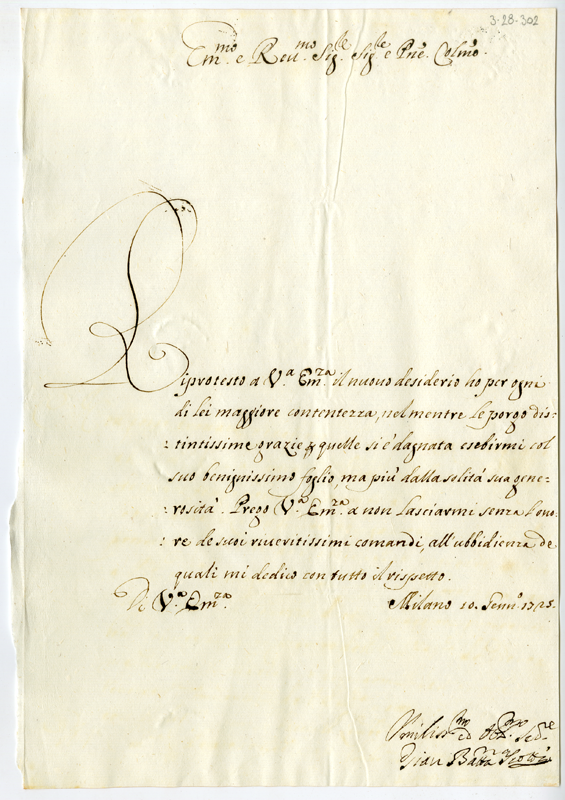 3-28-302
Em.mo e Reu.mo Sig.re Sig.re e Prñe. Colmo.
Riprotesto a V.a Em.za il nuouo desiderio ho per ogni
di lei maggiore contentezza, nel mentre le porgo dis-
:tintissime grazie p quelle si è dagnata esebirmi col
suo benignissimo foglio, ma più dalla solità sua gene-
:rosità. Prego V.a Em.za a non lasciarmi senza l'ono-
:re de suoi riueritissimi comandi, all'ubbidienza de
quali mi dedico con tutto il rispetto.
Di V.a Em.za Milano 10. Genn.o 1725.
Vmiliss.mo ed Obb.mo Ser.re
Gian Batta Scotti